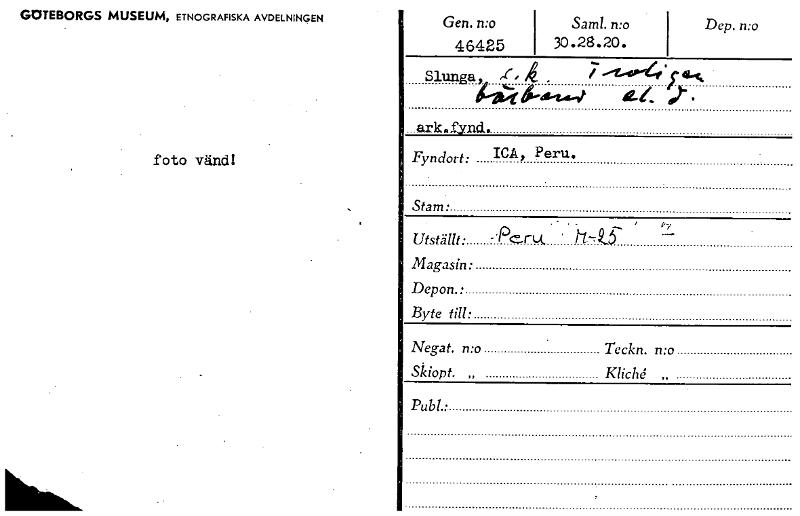 GÖTEBORGS MUSEUM, ETNOGRAFISKA AVDELNINGEN
foto vänd!
Gen. n:o
46425
Saml. n:o
30.28.20.
Dep. n:o
Slunga, s.k. Troligen
bärband el. d.
ark.fynd.
Fyndort: ICA, Peru.
Stam:
Utställt: Peru M-25
Magasin:
Depon.:
Byte till:
Negat. n:o Teckn. n:o
Skiopt. „ Kliché „
Publ.: